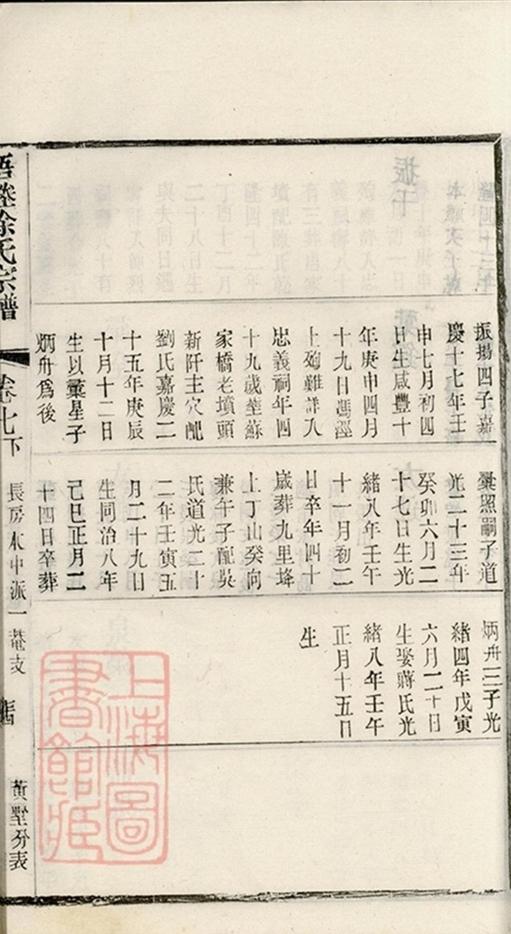 振揚四子嘉
慶十七年壬
申七月初四
日生咸豐十
年庚申四月
十九日馮涇
上殉難詳入
忠義祠年四
十九歲葬蘇
家橋老墳頭
新阡主穴配
劉氏嘉慶二
十五年庚辰
十月十二日
生以彙星子
炳舟為後
彙照嗣子道
光二十三年
癸卯六月二
十七日生光
緒八年壬午
十一月初二
日卒年四十
歲葬九里垰
上丁山癸向
兼午子配吳
氏道光二十
二年壬寅五
月二十九日
生同治八年
己巳正月二
十四日卒葬
炳舟三子光
緒四年戊寅
六月二十日
生娶蔣氏光
緒八年壬午
正月十五日
生
徐氏宗譜
卷七下
長房水中派一菴支
黃墅分表
上海圖
書館藏